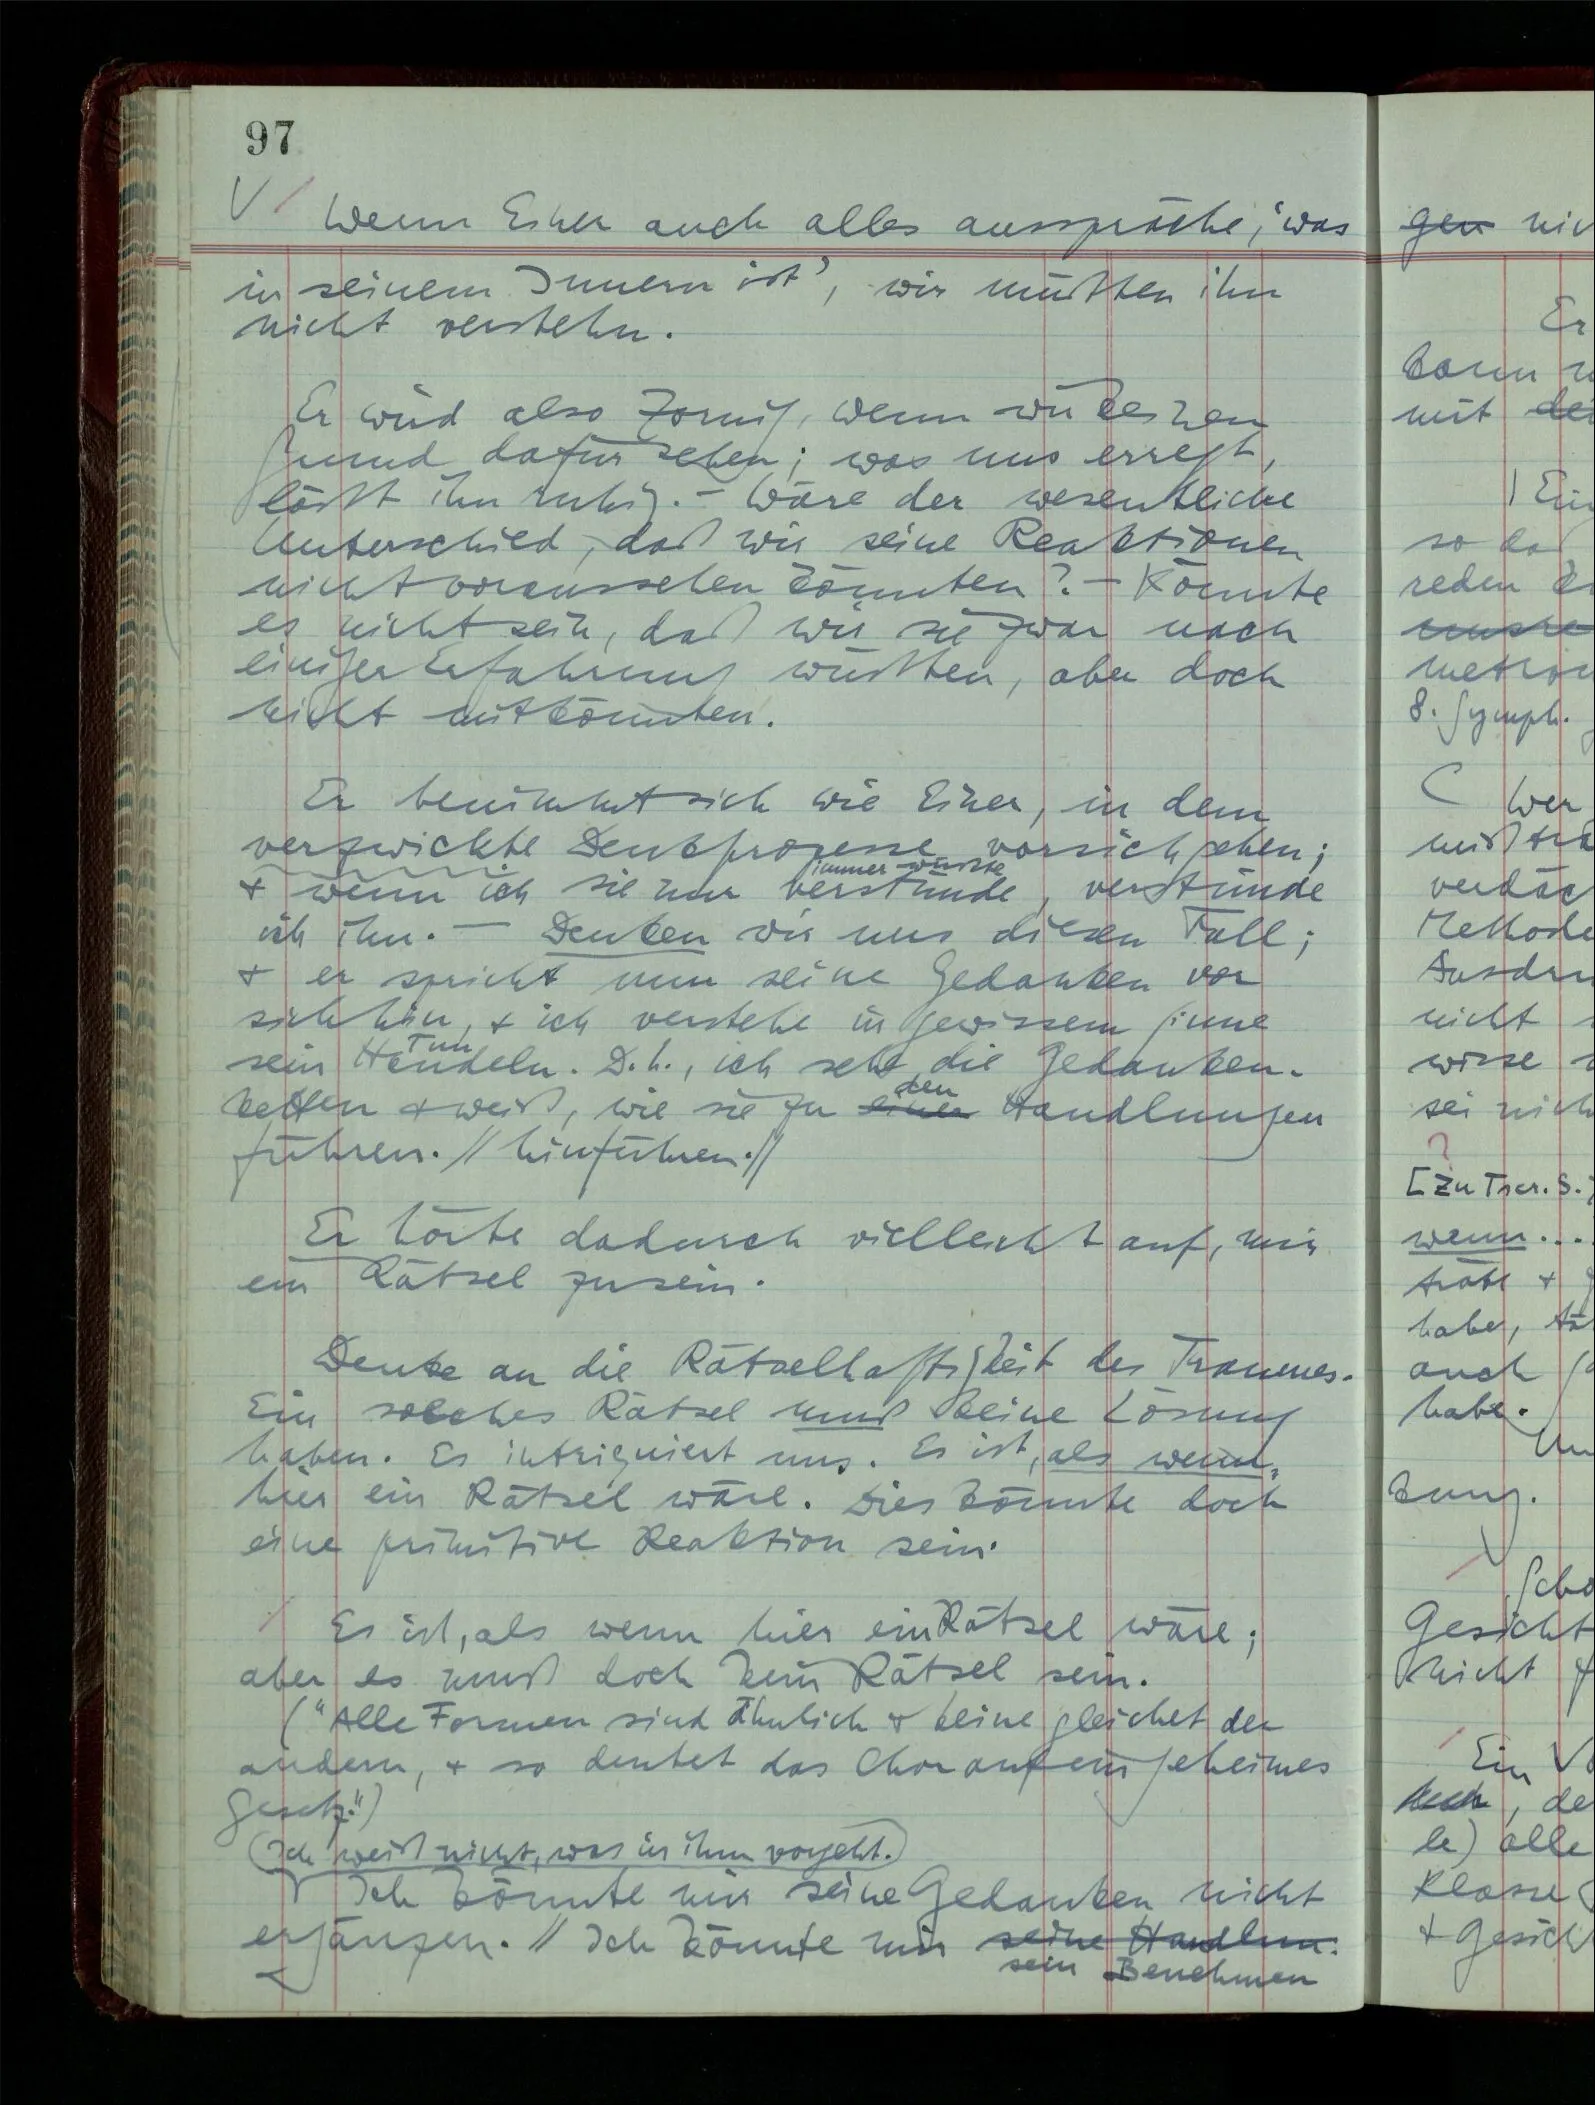 97
Wenn Einer auch alles ausspräche, ‘was
in seinem Innern ist’, wir müßten ihn
nicht verstehn.
Er wird also zornig, wenn wir keinen
Grund dafür sehen; was uns erregt,
läßt ihn ruhig. – Wäre der wesentliche
Unterschied, daß wir seine Reaktionen
nicht voraussehen könnten? – Könnte
es nicht sein, daß wir sie zwar nach
einiger Erfahrung wüßten, aber doch
nicht mitkönnten.
Er benimmt sich wie Einer, in dem
verzwickte Denkprozesse vorsichgehen;
immer wüßte
+ wenn ich sie nur verstünde, verstünde
ich ihn. – Denken wir uns diesen Fall;
+ er spricht nun seine Gedanken vor
sich hin, + ich verstehe in gewissem Sinne
Tun
sein Handeln. D.h., ich sehe die Gedanken-
den
ketten + weiß, wie sie zu einer Handlungen
führen. // hinführen. //
Er hörte dadurch vielleicht auf, mir
ein Rätsel zu sein.
Denke an die Rätselhaftigkeit des Traumes.
Ein solches Rätsel muß keine Lösung
haben. Es intriguiert uns. Es ist, als wenn
hier ein Rätsel wäre. Dies könnte doch
eine primitive Reaktion sein.
Es ist, als wenn hier ein Rätsel wäre;
aber es muß doch kein Rätsel sein.
(“Alle Formen sind ähnlich + keine gleichet der
andern, + so deutet das Chor auf ein geheimes
Gesetz.”)
(Ich weiß nicht, was in ihm vorgeht.)
Ich könnte mir seine Gedanken nicht
ergänzen. // Ich könnte mir seine Handlun-
sein Benehmen
gen
Er
kann
mit
so daß
reden
8. Symph.
Wer
Methode
nicht
wisse
sei
?
[Zu Tscr. S.
wenn...
habe,
auch
habe.
kung.
Gesicht
nicht
Ein
le) alle
Klasse